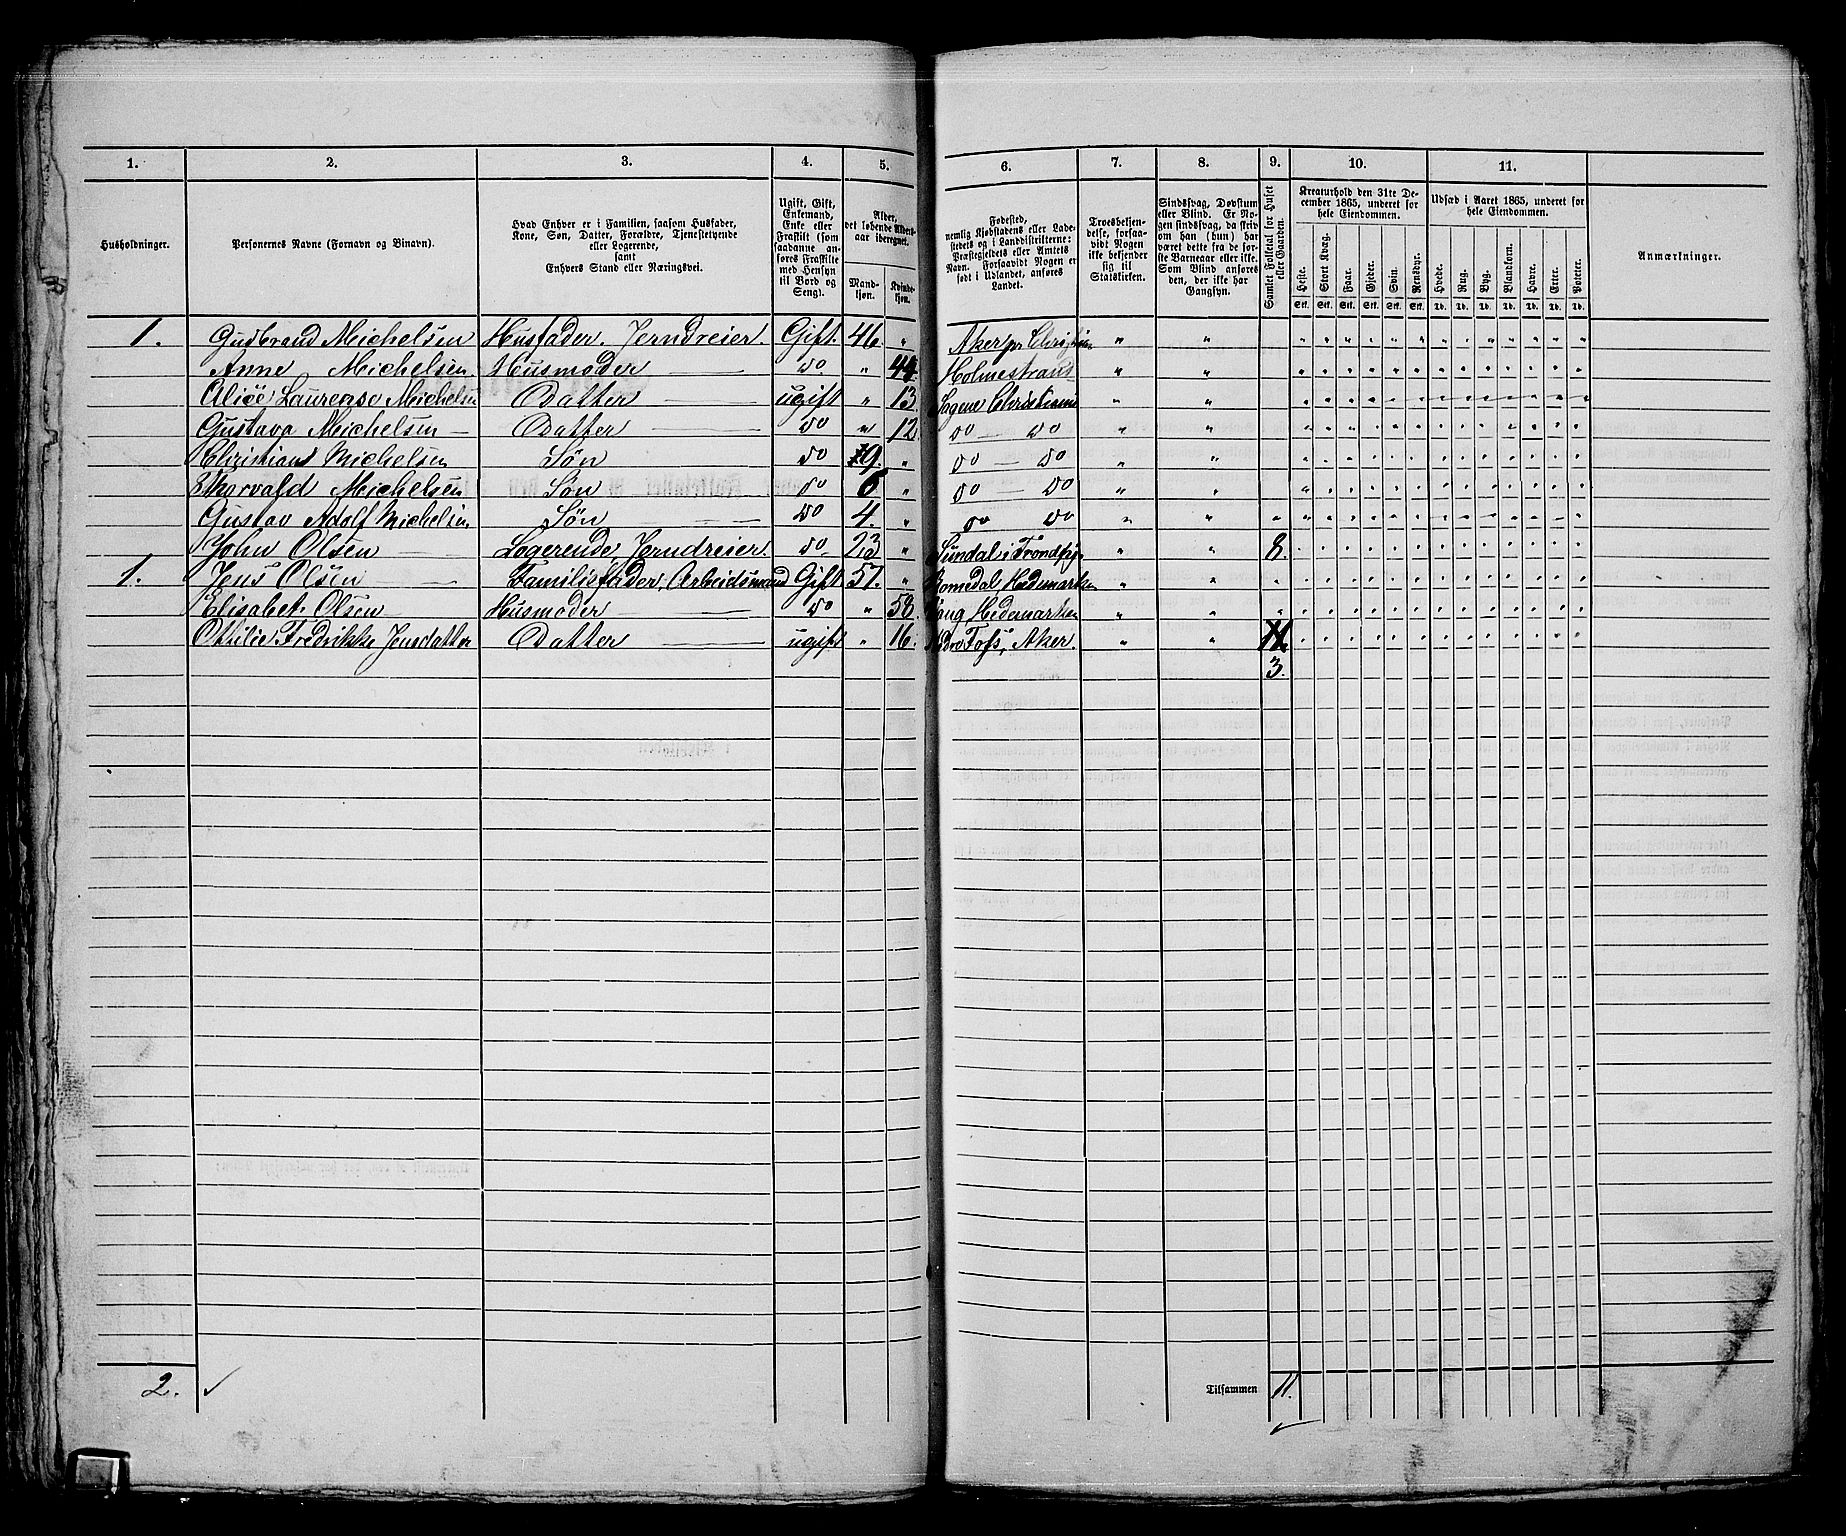 1. 2. 3. 4. 5. 6. 7. 8. 9. 10. 11.
Husholdninger.
Personernes Navne (Fornavn og Binavn).
Hvad Enhver er i Familien, saasom Husfader,
Kone, Søn, Datter, Forældre, Tjenestetyende
eller Logerende,
samt
Enhvers Stand eller Næringsvei.
Ugift, Gift,
Enkemand,
Enke eller
Fraskilt (som
saadanne an-
føres Fraskilte
med Hensyn
til Bord og
Seng).
Alder,
det løbende Alders-
aar iberegnet.
Mand-
kjøn.
Kvinde-
kjøn.
Fødested,
nemlig Kjøbstadens eller Lade-
stedets og i Landdistrikterne:
Præstegjeldets eller Amtets
Navn. Forsaavidt Nogen er
født i Udlandet, anføres
Landet.
Troesbekjen-
delse, forsaa-
vidt Nogen
ikke bekjender
sig til
Statskirken.
Sindssvag, Døvstum
eller Blind. Er No-
gen sindssvag, da skriv
om han (hun) har
været dette fra de før-
ste Barneaar eller ikke.
Som Blind anføres
den, der ikke har
Gangsyn.
Samlet Folketal for Huset
eller Gaarden.
Kreaturhold den 31te De-
cember 1865, underet for
hele Eiendommen.
Heste. Stort Kvæg. Faar. Gjeder. Svin. Rensdyr.
Stk. Stk. Stk. Stk. Stk. Stk.
Udsæd i Aaret 1865, underet for
hele Eiendommen.
Hvede. Rug. Byg. Blandkorn. Havre. Erter. Poteter.
Td. Td. Td. Td. Td. Td. Td.
Anmærkninger.
1. Gudbrand Michelsen Husfader. Jerndreier. Gift. 46. " Aker pr Christian " "
Anne Michelsen Husmoder do. " 44. Holmestrand " "
Alice Laurense Michelsen Datter ugift " 13. Sagene Christiania " "
Gustava Michelsen Datter do " 12. do do " "
Christian Michelsen Søn do 9. " do do " "
Thorvald Michelsen Søn do 6 " do do " "
Gustav Adolf Michelsen Søn do 4. " do do " "
John Olsen Logerende, Jerndreier. do. 23 " Sundal i Trondhj. " " 8.
1. Jens Olsen Familiefader, Arbeidsmand Gift. 57. " Romedal, Hedemarken " "
Elisabet Olsen Husmoder do " 58. Vang, Hedemarken " "
Othilie Fredrikke Jensdatter Datter ugift " 16. Foss, Aker. " " 11.
3.
2. Tilsammen 11.